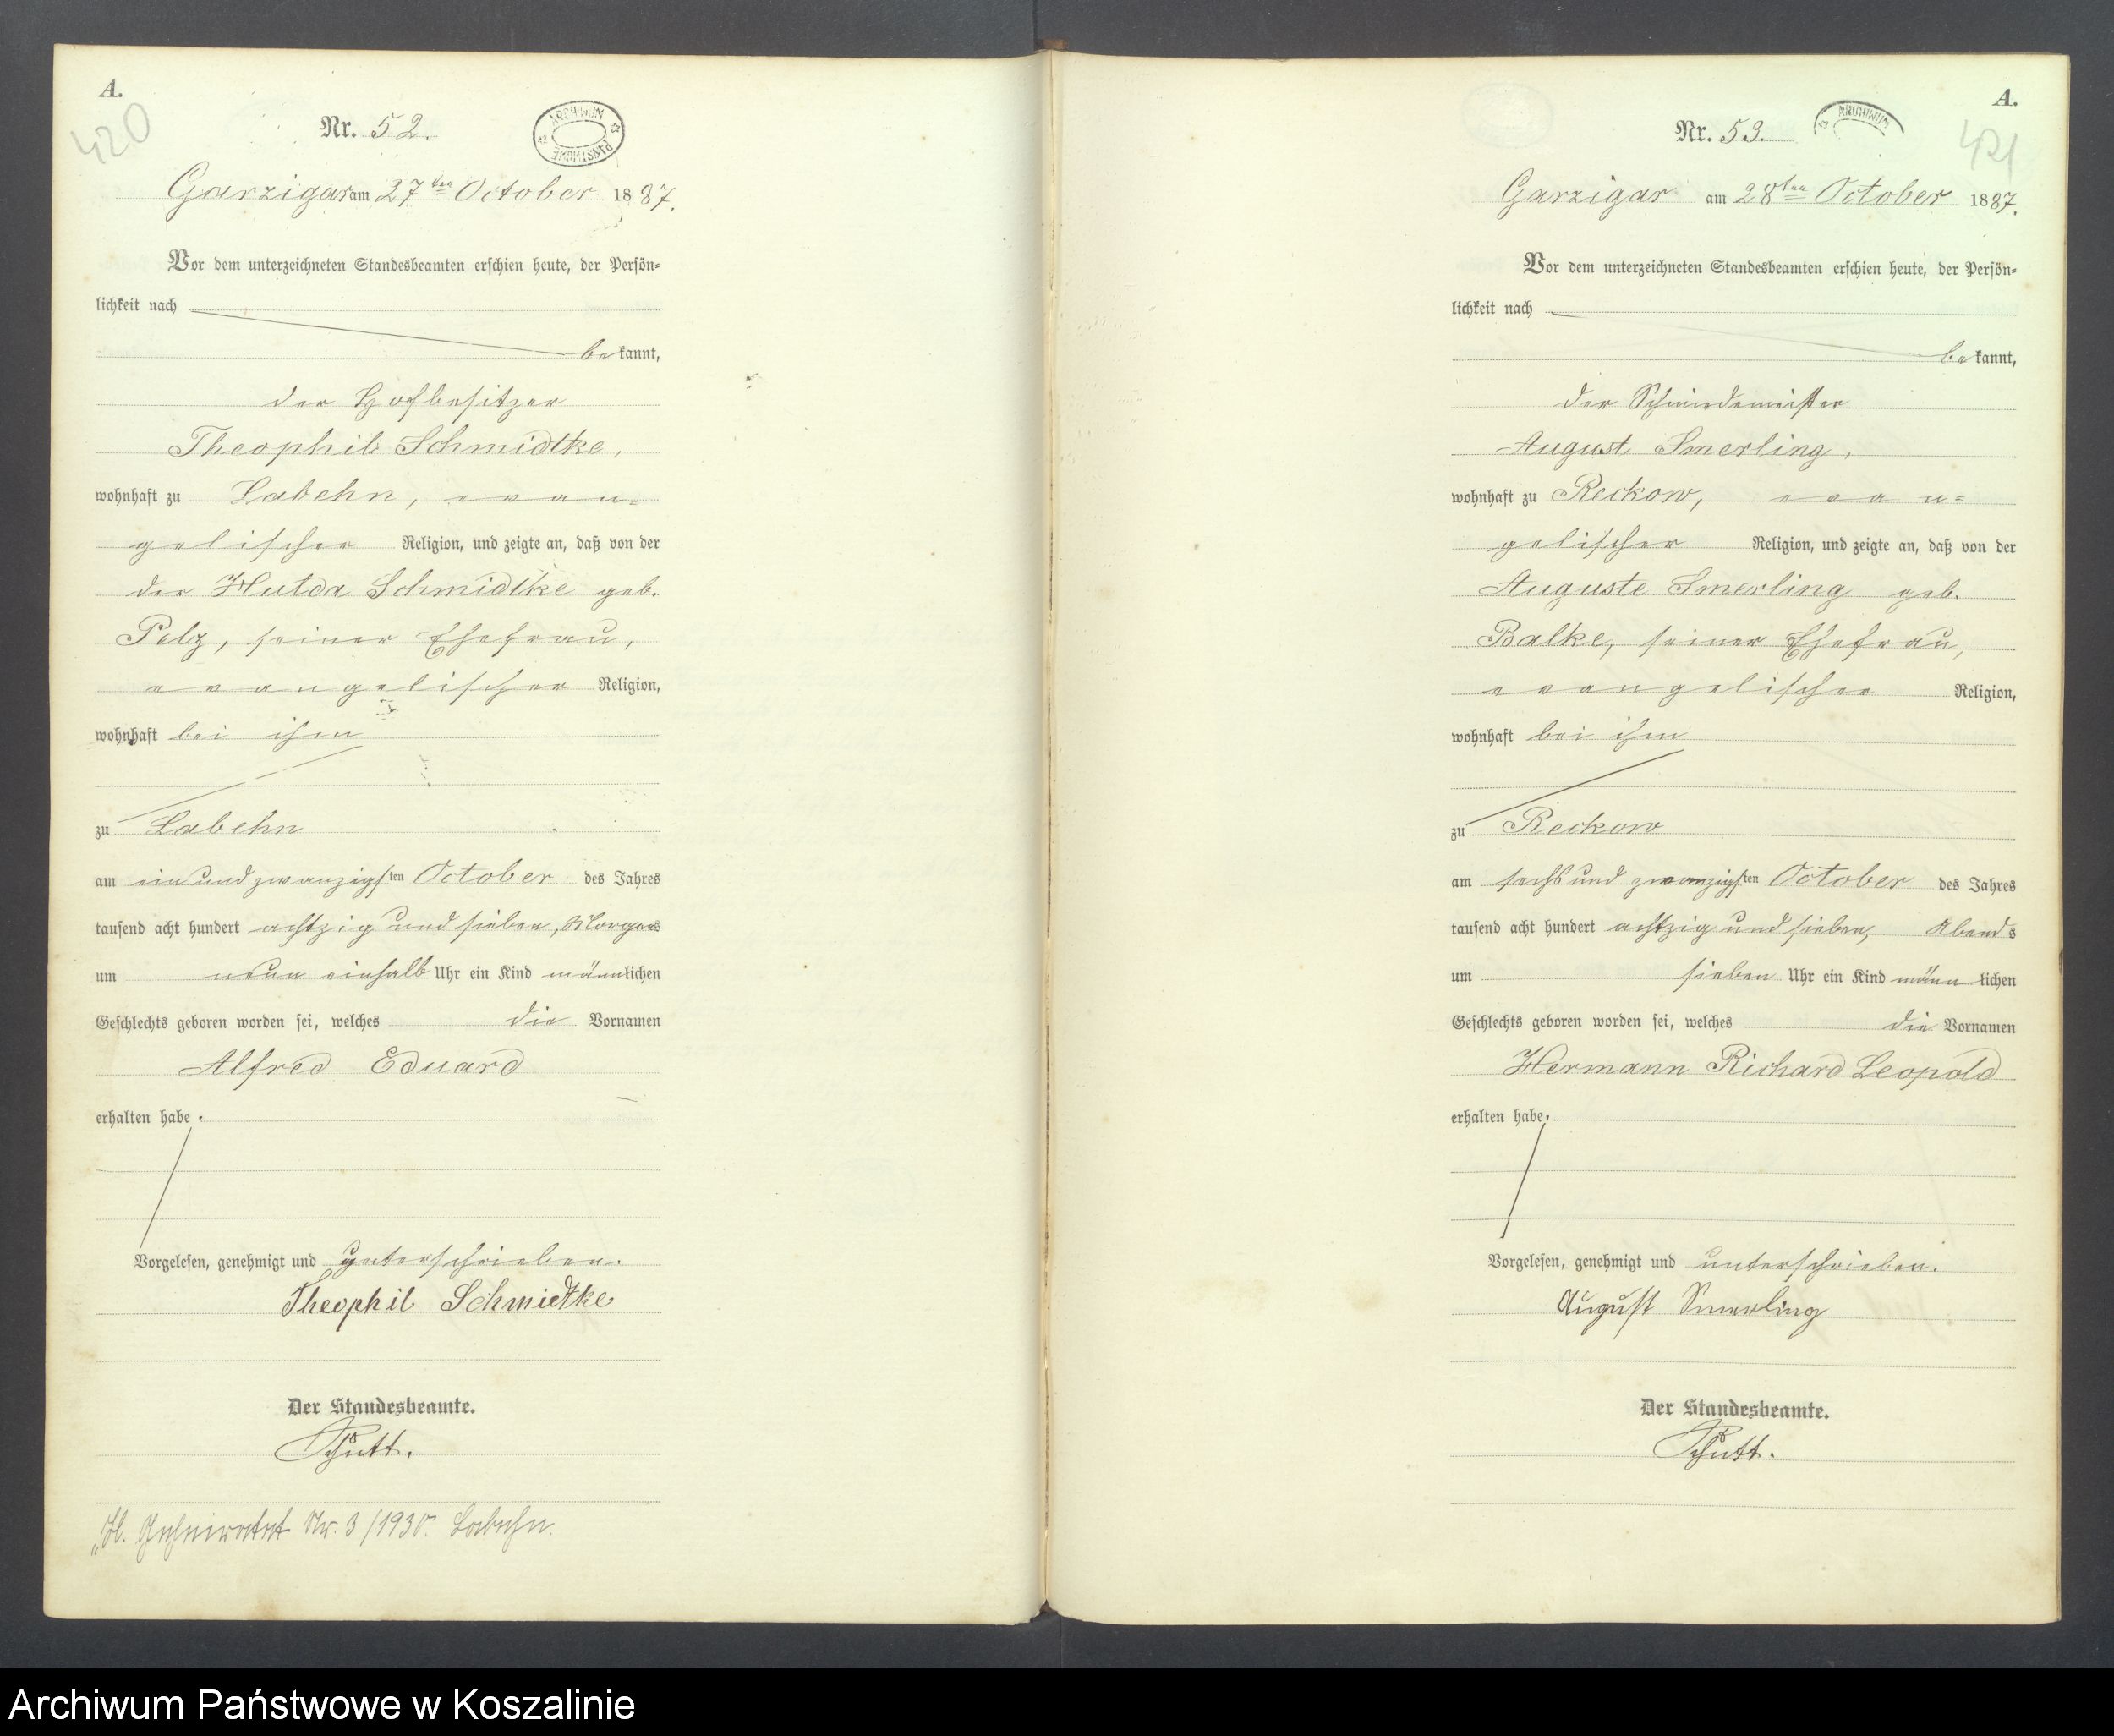 A.
420
Nr. 52.
ARCHIWUM PAŃSTWOWE
Garzigar am 27ten October 1887.
Vor dem unterzeichneten Standesbeamten erschien heute, der Persön=
lichkeit nach
bekannt,
der Hofbesitzer
Theophil Schmidtke,
wohnhaft zu Labehn, evan=
gelischer Religion, und zeigte an, daß von der
der Hulda Schmidtke geb.
Pelz, seiner Ehefrau,
evangelischer Religion,
wohnhaft bei ihm
zu Labehn
am ein und zwanzigsten October des Jahres
tausend acht hundert achtzig und sieben, Morgens
um neun einhalb Uhr ein Kind männlichen
Geschlechts geboren worden sei, welches die Vornamen
Alfred Eduard
erhalten habe.
Vorgelesen, genehmigt und unterschrieben.
Theophil Schmidtke
Der Standesbeamte.
Schütt.
Nr. 3/1930. Labehn.
A.
421
Nr. 53.
ARCHIWUM
Garzigar am 28ten October 1887.
Vor dem unterzeichneten Standesbeamten erschien heute, der Persön=
lichkeit nach
bekannt,
der Schmiedemeister
August Smerling,
wohnhaft zu Reckow, evan=
gelischer Religion, und zeigte an, daß von der
Auguste Smerling geb.
Balke, seiner Ehefrau,
evangelischer Religion,
wohnhaft bei ihm
zu Reckow
am sechs und zwanzigsten October des Jahres
tausend acht hundert achtzig und sieben, Abends
um sieben Uhr ein Kind männlichen
Geschlechts geboren worden sei, welches die Vornamen
Hermann Richard Leopold
erhalten habe.
Vorgelesen, genehmigt und unterschrieben.
August Smerling
Der Standesbeamte.
Schütt.
Archiwum Państwowe w Koszalinie